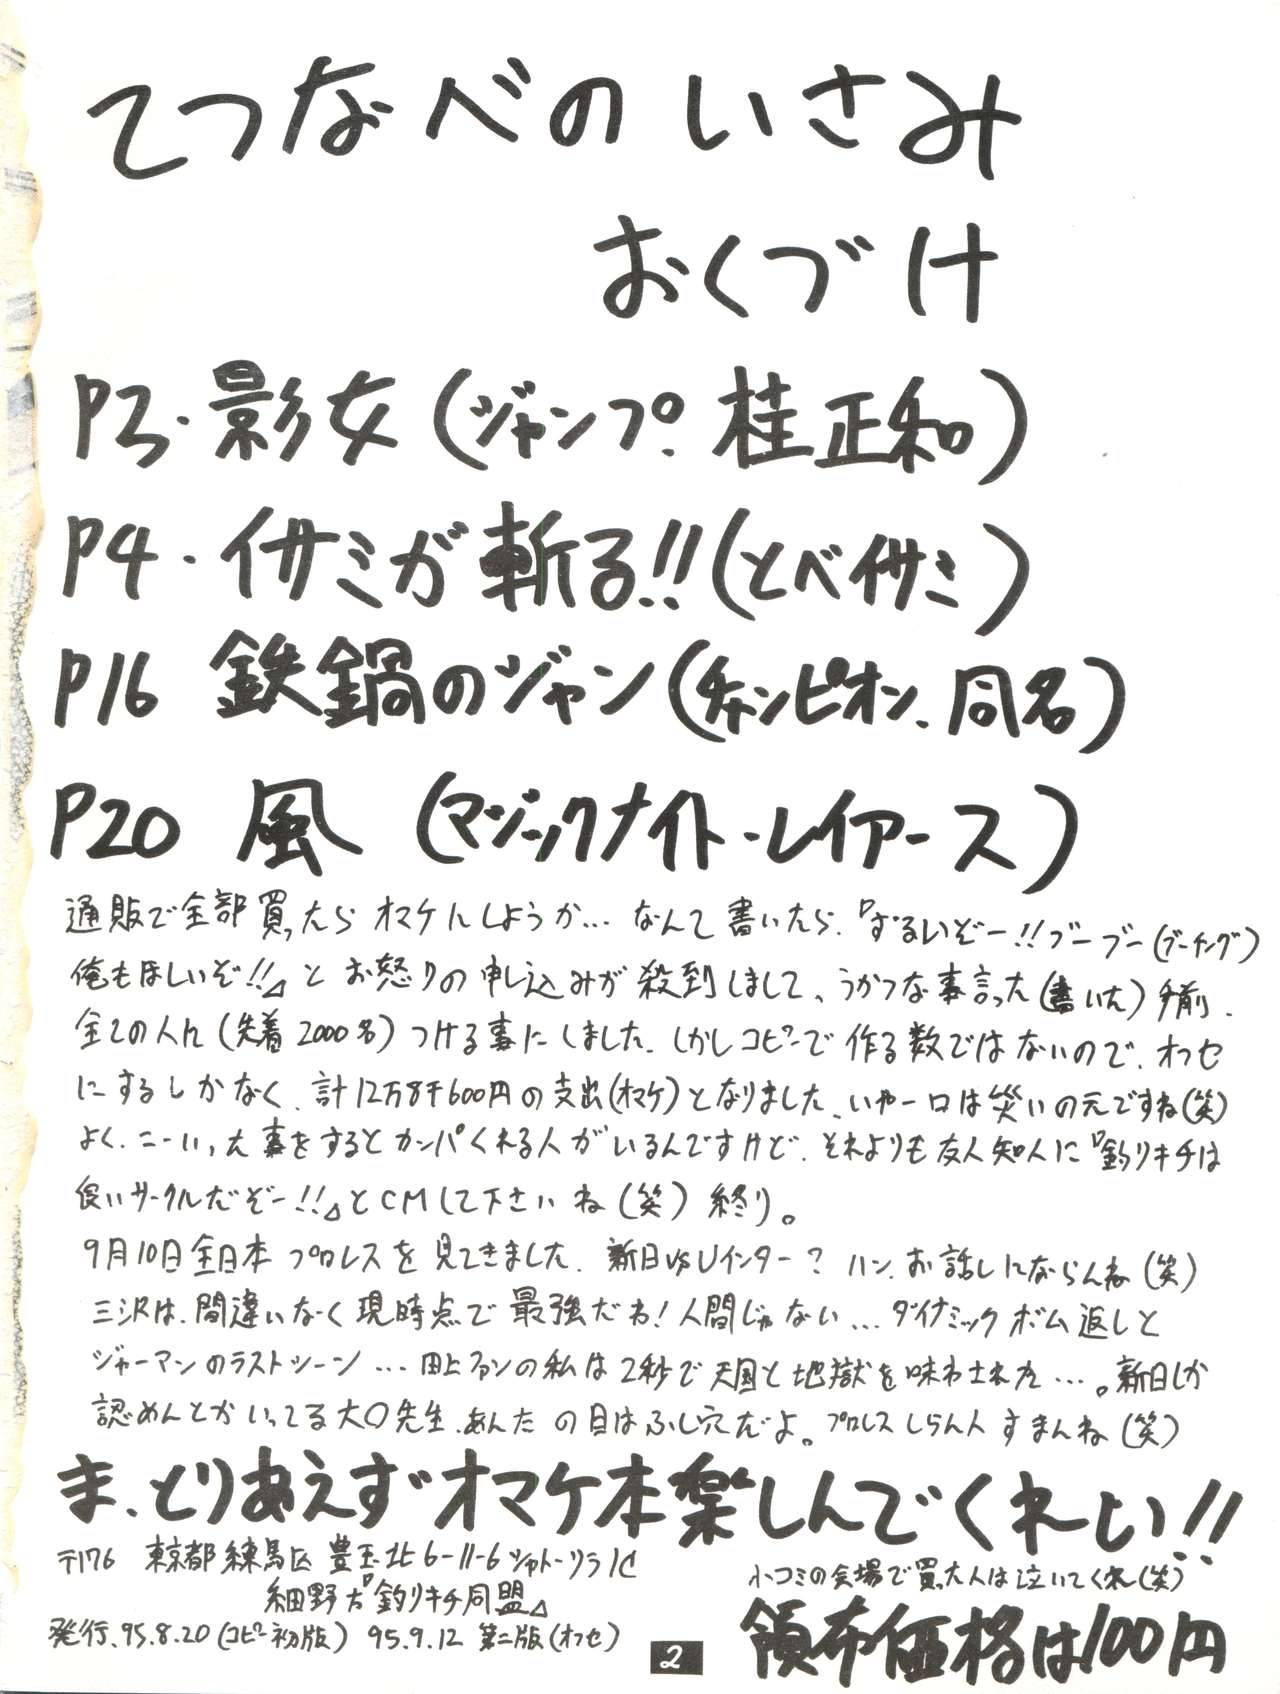 てつなべのいさみ
おくづけ
P3・影女(ジャンプ、桂正和)
P4・イサミが斬る!!(とべイサミ)
P16 鉄鍋のジャン(チャンピオン、同名)
P20 風 (マジックナイト・レイアース)
通販で全部買ったらオマケにしようか…なんて書いたら、『ずるいぞー!!ブーブー(ブーイング)
俺もほしいぞ!!』とお怒りの申し込みが殺到しまして、うかつな事言った(書いた)手前、
全ての人に(先着2000名)つける事にしました、しかしコピーで作る数ではないので、オフセ
にするしかなく、計12万8千600円の支出(オマケ)となりました、いやー口は災いの元ですね(笑)
よく、こーいった事をするとカンパくれる人がいるんですけど、それよりも友人知人に『釣りキチは
良いサークルだぞー!!』とCMして下さいね(笑)終り。
9月10日全日本プロレスを見てきました、新日vsUインター?ハン、お話しにならんね(笑)
三沢は、間違いなく現時点で最強だね!人間じゃない…ダイナミックボム返しと
ジャーマンのラストシーン…田上ファンの私は2秒で天国と地獄を味わされた…。新日しか
認めんとかいってる大〇先生、あんたの目はふし穴だよ。プロレスしらん人すまんね(笑)
ま、とりあえずオマケ本楽しんでくれーい!!
〒176 東京都練馬区豊玉北6-11-6シャトーソラ1C
細野方『釣りキチ同盟』
小コミの会場で買った人は泣いてくれ(笑)
発行、95.8.20(コピー初版) 95.9.12 第二版(オフセ)
領布価格は100円
2